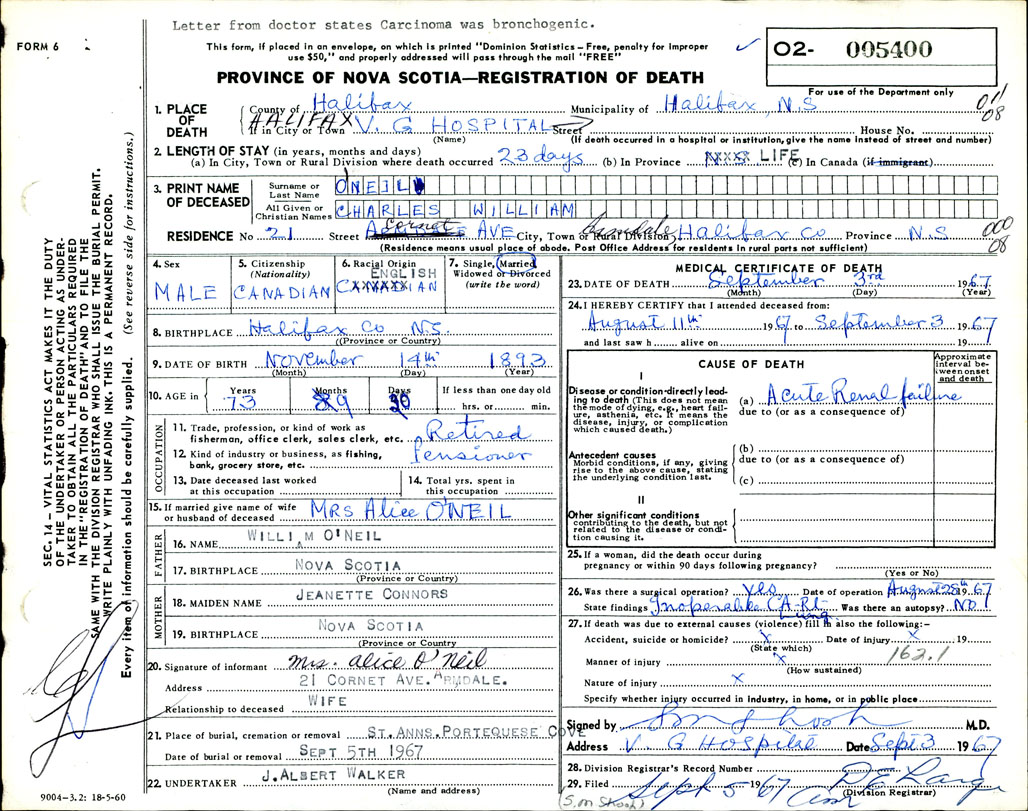 Letter from doctor states Carcinoma was bronchogenic.
FORM 6
This form, if placed in an envelope, on which is printed "Dominion Statistics – Free, penalty for improper
use $50," and properly addressed will pass through the mail "FREE"
02- 005400
PROVINCE OF NOVA SCOTIA—REGISTRATION OF DEATH
For use of the Department only
1. PLACE OF DEATH
County of Halifax Municipality of Halifax, N.S
011
08
HALIFAX
If in City or Town V. G HOSPITAL Street House No.
(Name) (If death occurred in a hospital or institution, give the name instead of street and number)
2. LENGTH OF STAY (in years, months and days)
(a) In City, Town or Rural Division where death occurred 23 days (b) In Province LIFE (c) In Canada (if immigrant)
3. PRINT NAME OF DECEASED
Surname or Last Name O'NEIL
All Given or Christian Names CHARLES WILLIAM
RESIDENCE No 21 Street Cornet AVE City, Town or Rural Division Armdale Halifax Co Province N.S
000
08
(Residence means usual place of abode. Post Office Address for residents in rural parts not sufficient)
4. Sex
MALE
5. Citizenship
(Nationality)
CANADIAN
6. Racial Origin
ENGLISH
CANADIAN
7. Single, Married
Widowed or Divorced
(write the word)
8. BIRTHPLACE Halifax Co N.S.
(Province or Country)
9. DATE OF BIRTH November 14th 1893
(Month) (Day) (Year)
10. AGE in Years Months Days If less than one day old
73 9 hrs. or min.
OCCUPATION
11. Trade, profession, or kind of work as
fisherman, office clerk, sales clerk, etc. Retired
12. Kind of industry or business, as fishing,
bank, grocery store, etc. Pensioner
13. Date deceased last worked
at this occupation
14. Total yrs. spent in
this occupation
15. If married give name of wife
or husband of deceased MRS Alice O'NEIL
FATHER
16. NAME WILLIAM O'NEIL
17. BIRTHPLACE NOVA SCOTIA
(Province or Country)
MOTHER
18. MAIDEN NAME JEANETTE CONNORS
19. BIRTHPLACE NOVA SCOTIA
(Province or Country)
20. Signature of informant Mrs. Alice O'Neil
Address 21 CORNET AVE. ARMDALE.
Relationship to deceased WIFE
21. Place of burial, cremation or removal ST. ANNS. PORTEQUESE COVE
Date of burial or removal SEPT 5TH 1967
22. UNDERTAKER J. ALBERT WALKER
(Name and address)
9004-3.2: 18-5-60
MEDICAL CERTIFICATE OF DEATH
23. DATE OF DEATH September 3rd 1967
(Month) (Day) (Year)
24. I HEREBY CERTIFY that I attended deceased from:
August 11th 1967 to September 3 1967
and last saw h alive on 19
CAUSE OF DEATH
Approximate interval between onset and death
I
Disease or condition directly leading to death (This does not mean the mode of dying, e.g., heart failure, asthenia, etc. It means the disease, injury, or complication which caused death.)
(a) Acute Renal failure
due to (or as a consequence of)
Antecedent causes
Morbid conditions, if any, giving rise to the above cause, stating the underlying condition last.
(b)
due to (or as a consequence of)
(c)
II
Other significant conditions
contributing to the death, but not related to the disease or condition causing it.
25. If a woman, did the death occur during
pregnancy or within 90 days following pregnancy?
(Yes or No)
26. Was there a surgical operation? yes Date of operation August 28th 1967
State findings Inoperable CA-Rt Lung Was there an autopsy? NO
27. If death was due to external causes (violence) fill in also the following:–
Accident, suicide or homicide? x Date of injury x 19
(State which)
162.1
Manner of injury x
(How sustained)
Nature of injury x
Specify whether injury occurred in industry, in home, or in public place
Signed by M.D.
Address V. G Hospital Date Sept 3 1967
28. Division Registrar's Record Number
29. Filed Sept 5 67
(Division Registrar)
SEC. 14 – VITAL STATISTICS ACT MAKES IT THE DUTY
OF THE UNDERTAKER OR PERSON ACTING AS UNDER-
TAKER TO OBTAIN ALL THE PARTICULARS REQUIRED
IN THE "REGISTRATION OF DEATH" AND TO FILE THE
SAME WITH THE DIVISION REGISTRAR WHO SHALL ISSUE THE BURIAL PERMIT.
WRITE PLAINLY WITH UNFADING INK. THIS IS A PERMANENT RECORD.
Every item of information should be carefully supplied. (See reverse side for instructions.)